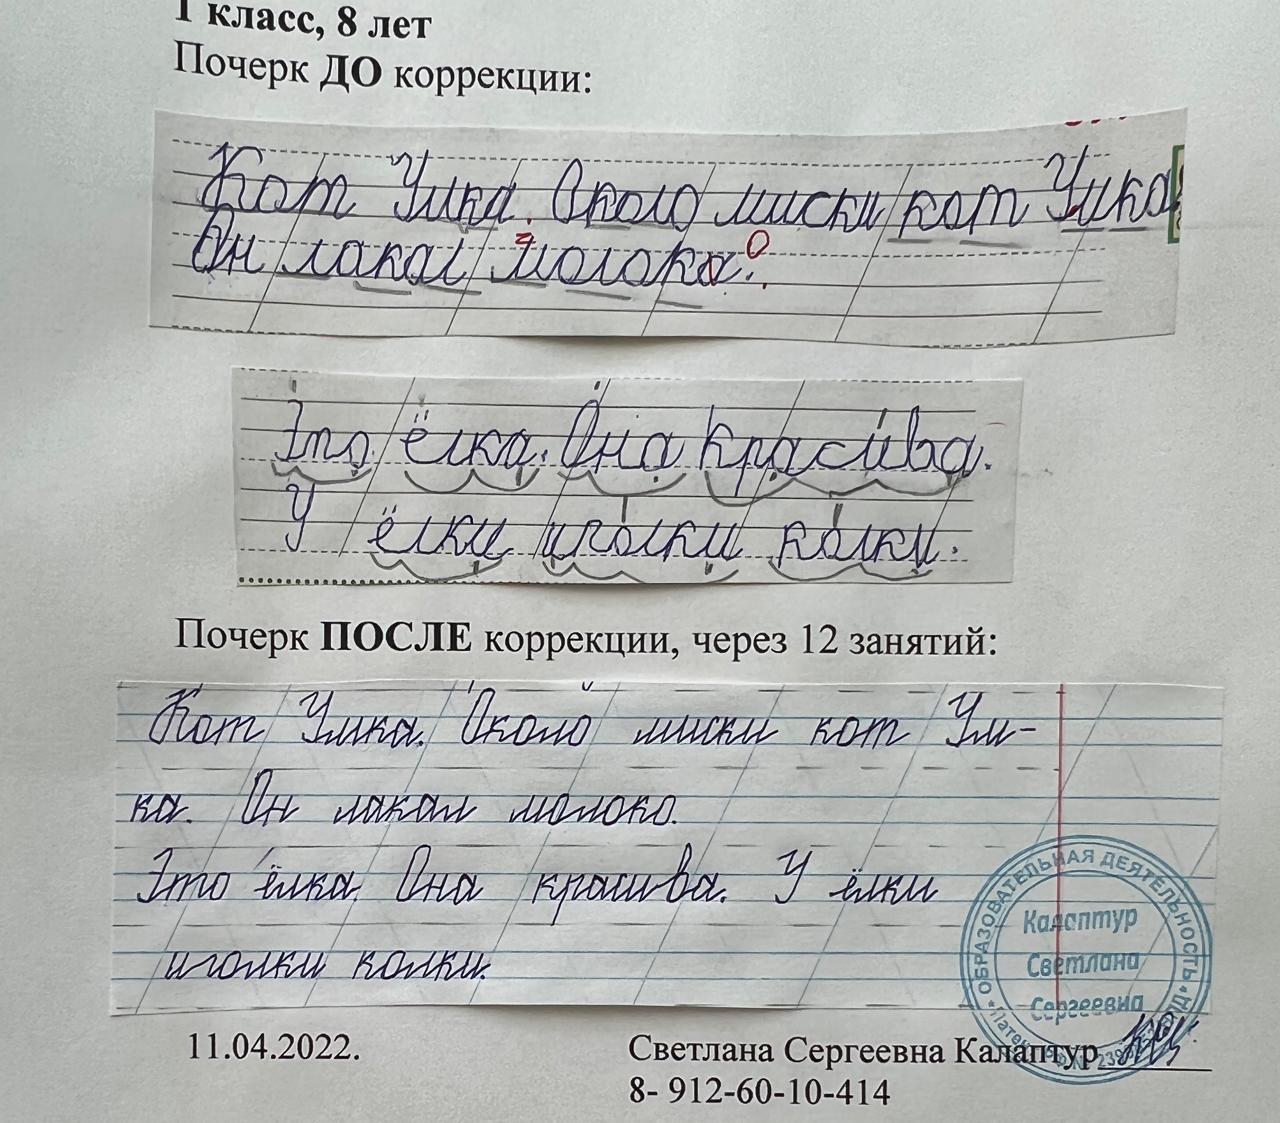 1 класс, 8 лет
Почерк ДО коррекции:
Кот Умка. Около миски кот Умка
Он лакал молока.
о
Это ёлка. Она красива.
У ёлки иголки колки.
Почерк ПОСЛЕ коррекции, через 12 занятий:
Кот Умка. Около миски кот Ум-
ка. Он лакал молоко.
Это ёлка. Она красива. У ёлки
иголки колки.
ОБРАЗОВАТЕЛЬНАЯ ДЕЯТЕЛЬНОСТЬ
Калаптур
Светлана
Сергеевна
11.04.2022.
Светлана Сергеевна Калаптур
8- 912-60-10-414